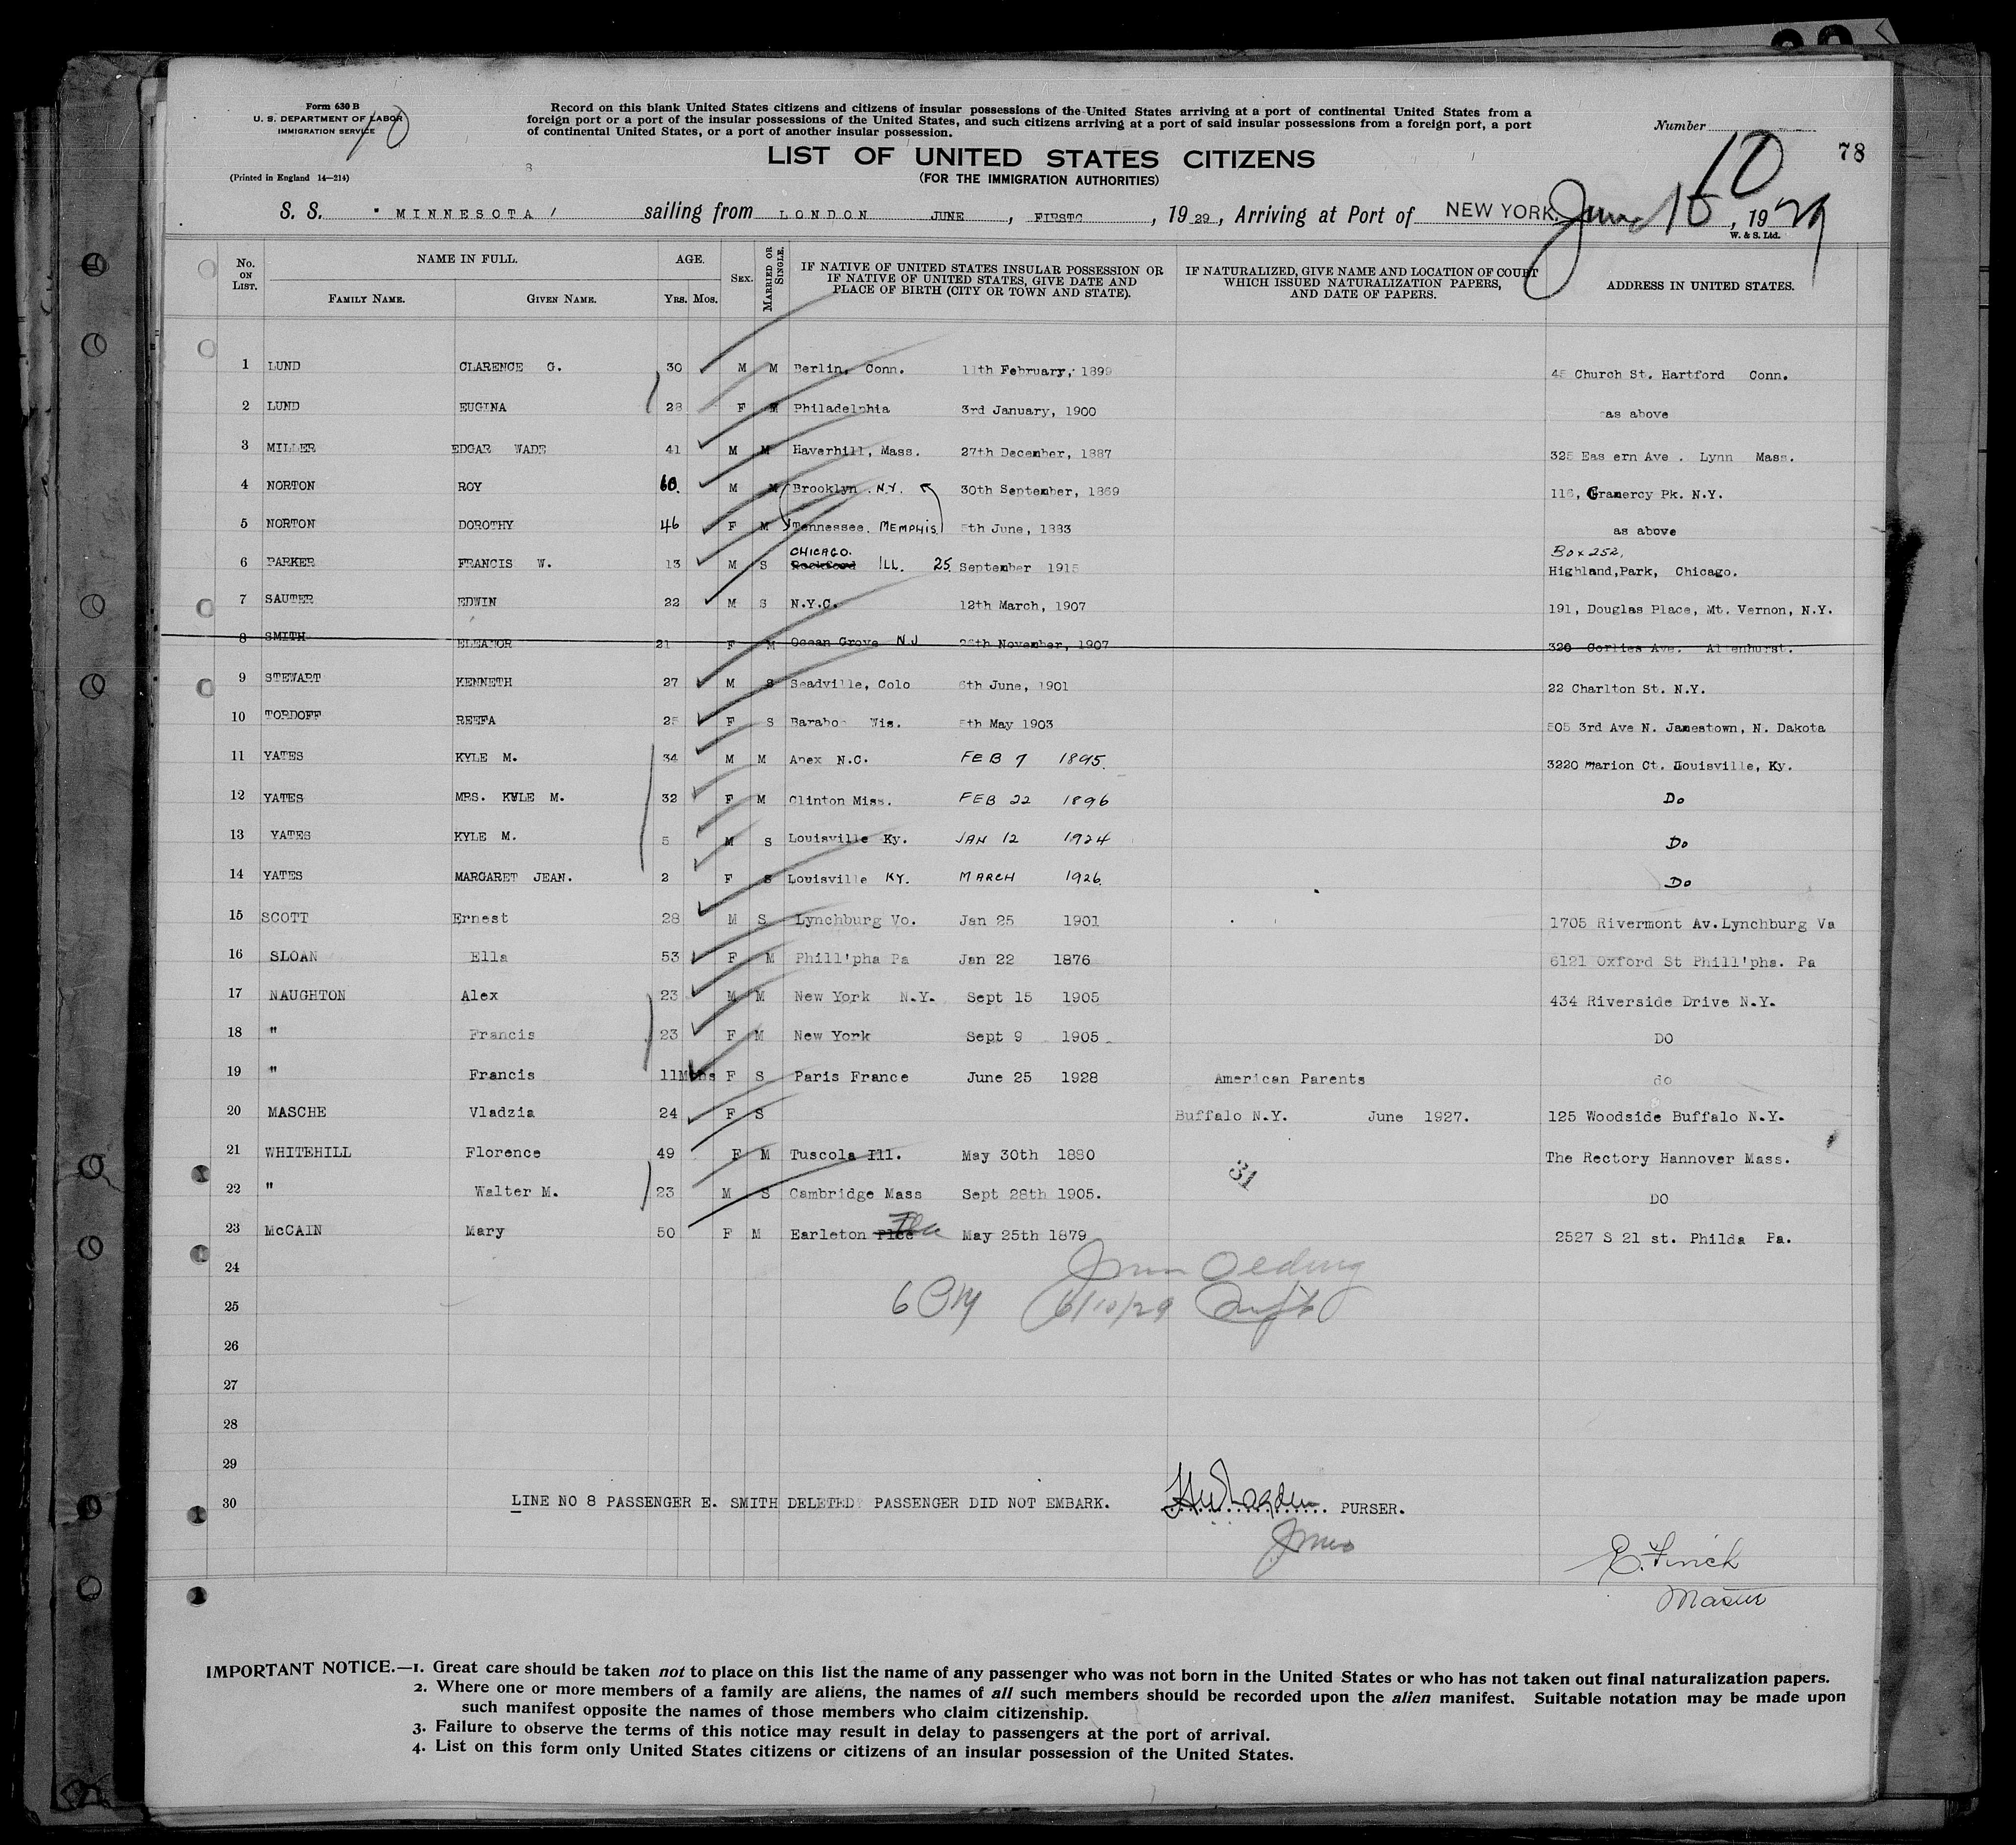 Form 630 B
U. S. DEPARTMENT OF LABOR
IMMIGRATION SERVICE
10
(Printed in England 14—214)
Record on this blank United States citizens and citizens of insular possessions of the United States arriving at a port of continental United States from a
foreign port or a port of the insular possessions of the United States, and such citizens arriving at a port of said insular possessions from a foreign port, a port
of continental United States, or a port of another insular possession.
Number 10
78
8
LIST OF UNITED STATES CITIZENS
(FOR THE IMMIGRATION AUTHORITIES)
S. S. " MINNESOTA / sailing from LONDON JUNE , FIRST , 19 29 , Arriving at Port of NEW YORK. June 10 , 19 29
W. & S. Ltd.
No. ON LIST. NAME IN FULL. AGE. SEX. MARRIED OR SINGLE. IF NATIVE OF UNITED STATES INSULAR POSSESSION OR IF NATIVE OF UNITED STATES, GIVE DATE AND PLACE OF BIRTH (CITY OR TOWN AND STATE). IF NATURALIZED, GIVE NAME AND LOCATION OF COURT WHICH ISSUED NATURALIZATION PAPERS, AND DATE OF PAPERS. ADDRESS IN UNITED STATES.
FAMILY NAME. GIVEN NAME. YRS. MOS.
1 LUND CLARENCE G. 30 M M Berlin, Conn. 11th February, 1899 45 Church St. Hartford Conn.
2 LUND EUGINA 28 F M Philadelphia 3rd January, 1900 as above
3 MILLER EDGAR WADE 41 M M Haverhill, Mass. 27th December, 1887 325 Eas ern Ave . Lynn Mass.
4 NORTON ROY 60. M M Brooklyn . N.Y. 30th September, 1869 116, Gramercy Pk. N.Y.
5 NORTON DOROTHY 46 F M Tennessee. MEMPHIS 5th June, 1883 as above
6 PARKER FRANCIS W. 13 M S CHICAGO. Rockford ILL. 25 September 1915 Box 252, Highland,Park, Chicago.
7 SAUTER EDWIN 22 M S N.Y.C. 12th March, 1907 191, Douglas Place, Mt. Vernon, N.Y.
8 SMITH ELEANOR 21 F M Ocean Grove N.J 26th November, 1907 320 Corlies Ave. Allenhurst.
9 STEWART KENNETH 27 M S Seadville, Colo 6th June, 1901 22 Charlton St. N.Y.
10 TORDOFF REEFA 25 F S Baraboo Wis. 5th May 1903 505 3rd Ave N. Jamestown, N. Dakota
11 YATES KYLE M. 34 M M Apex N.C. FEB 7 1895. 3220 Marion Ct. Louisville, Ky.
12 YATES MRS. KYLE M. 32 F M Clinton Miss. FEB 22 1896 Do
13 YATES KYLE M. 5 M S Louisville Ky. JAN 12 1924 Do
14 YATES MARGARET JEAN. 2 F S Louisville KY. MARCH 1926 Do
15 SCOTT Ernest 28 M S Lynchburg Vo. Jan 25 1901 1705 Rivermont Av.Lynchburg Va
16 SLOAN Ella 53 F M Phill'pha Pa Jan 22 1876 6121 Oxford St Phill'pha. Pa
17 NAUGHTON Alex 23 M M New York N.Y. Sept 15 1905 434 Riverside Drive N.Y.
18 " Francis 23 F M New York Sept 9 1905. DO
19 " Francis 11Mons F S Paris France June 25 1928 American Parents do
20 MASCHE Vladzia 24 F S Buffalo N.Y. June 1927. 125 Woodside Buffalo N.Y.
21 WHITEHILL Florence 49 F M Tuscola Ill. May 30th 1880 The Rectory Hannover Mass.
22 " Walter M. 23 M S Cambridge Mass Sept 28th 1905. 31 DO
23 McCAIN Mary 50 F M Earleton Fla May 25th 1879 2527 S 21 st. Philda Pa.
24
25 6/10/29
26
27
28
29
30 LINE NO 8 PASSENGER E. SMITH DELETED PASSENGER DID NOT EMBARK. PURSER.
E. Finch
Master
IMPORTANT NOTICE.—1. Great care should be taken not to place on this list the name of any passenger who was not born in the United States or who has not taken out final naturalization papers.
2. Where one or more members of a family are aliens, the names of all such members should be recorded upon the alien manifest. Suitable notation may be made upon
such manifest opposite the names of those members who claim citizenship.
3. Failure to observe the terms of this notice may result in delay to passengers at the port of arrival.
4. List on this form only United States citizens or citizens of an insular possession of the United States.